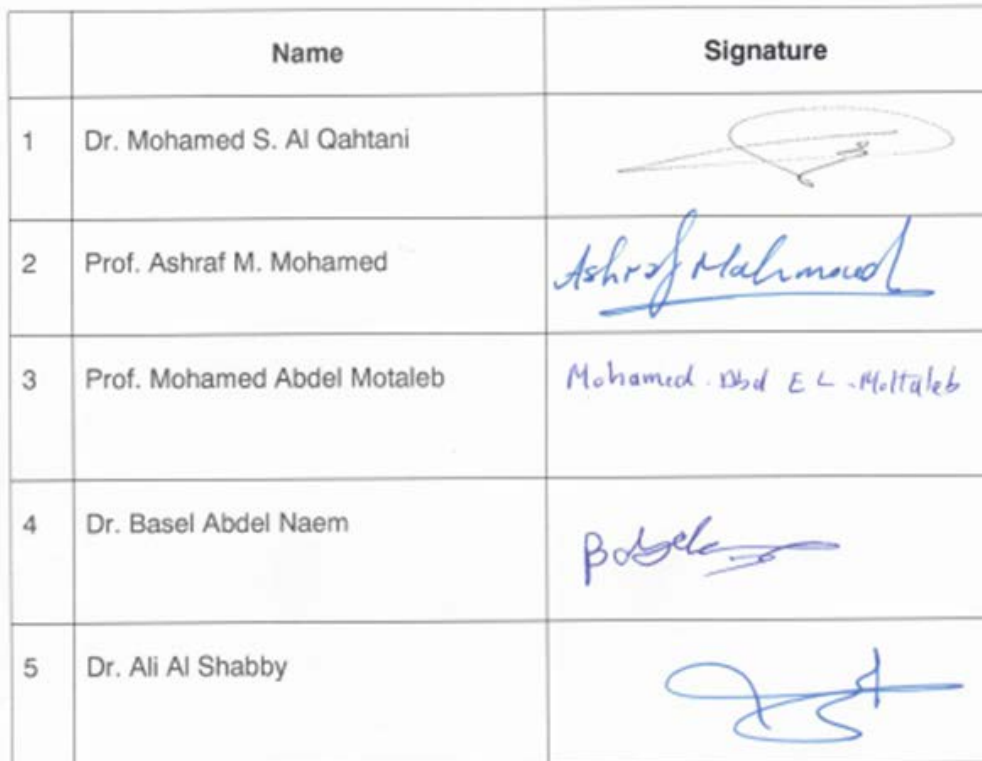 Name Signature
1 Dr. Mohamed S. Al Qahtani
2 Prof. Ashraf M. Mohamed Ashraf Mahmoud
3 Prof. Mohamed Abdel Motaleb Mohamed Abd EL-Moltaleb
4 Dr. Basel Abdel Naem Basel
5 Dr. Ali Al Shabby